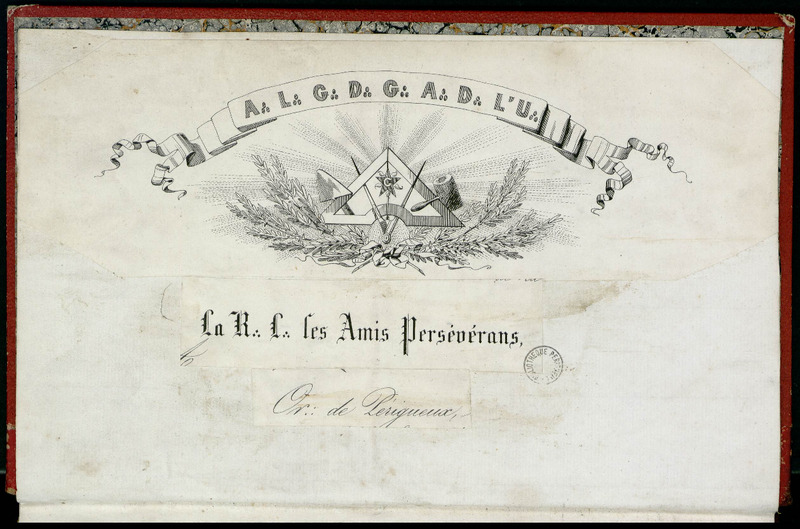 A∴ L∴ G∴ D∴ G∴ A∴ D∴ L'U∴
La R∴ L∴ les Amis Persévérans,
Or∴ de Périgueux,